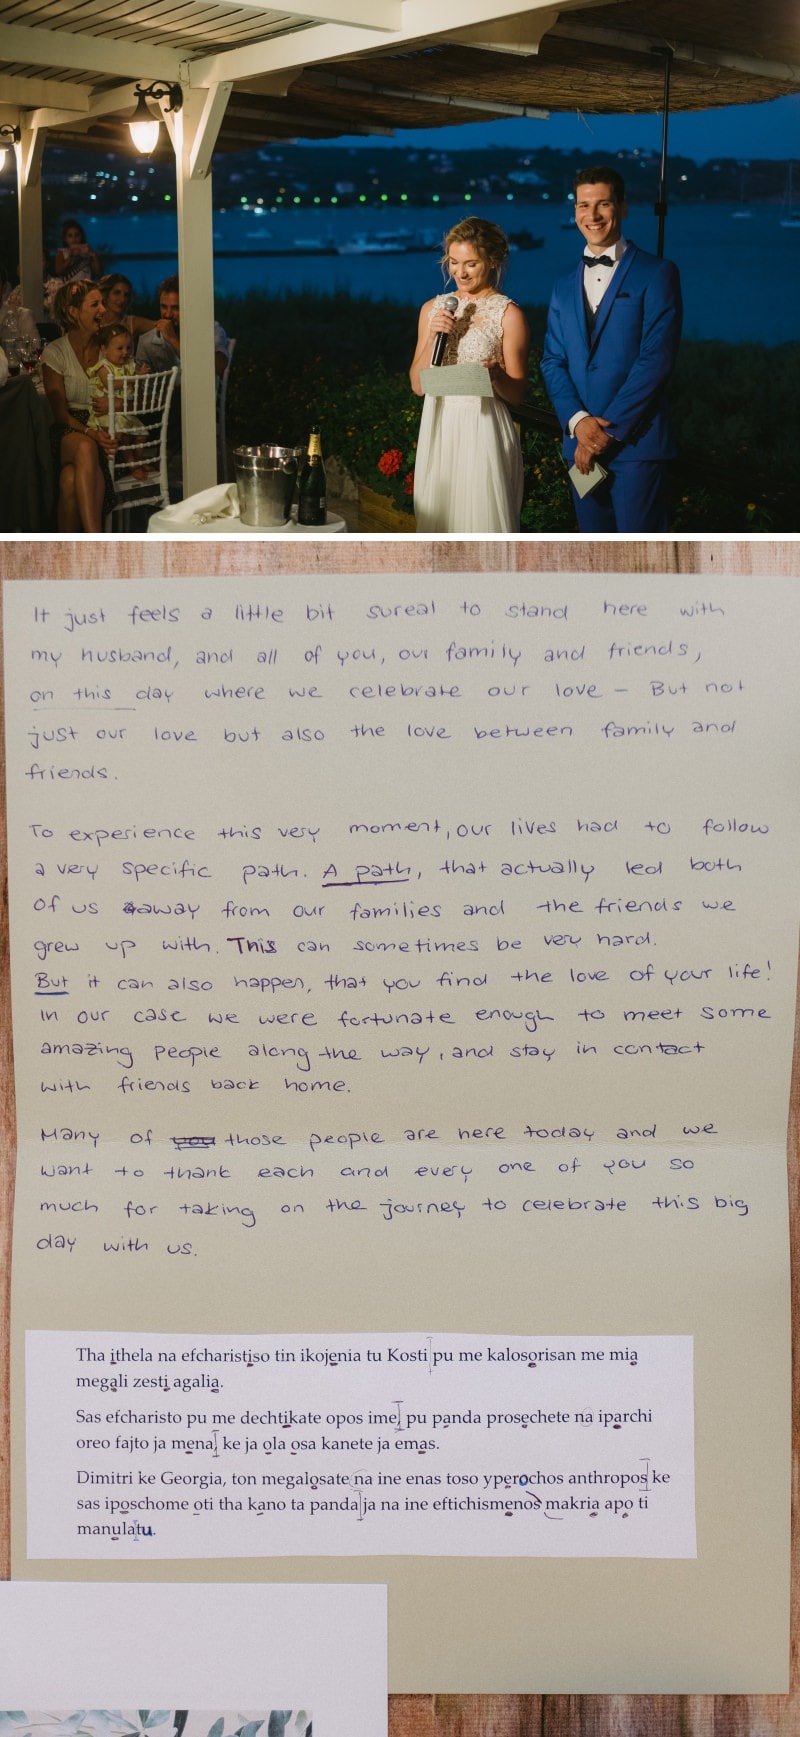 It just feels a little bit sureal to stand here with
my husband, and all of you, our family and friends,
on this day where we celebrate our love – But not
just our love but also the love between family and
friends.
To experience this very moment, our lives had to follow
a very specific path. A path, that actually led both
of us away from our families and the friends we
grew up with. This can sometimes be very hard.
But it can also happen, that you find the love of your life!
In our case we were fortunate enough to meet some
amazing people along the way, and stay in contact
with friends back home.
Many of you those people are here today and we
want to thank each and every one of you so
much for taking on the journey to celebrate this big
day with us.
Tha ithela na efcharistiso tin ikojenia tu Kosti pu me kalosorisan me mia
megali zesti agalia.
Sas efcharisto pu me dechtikate opos ime, pu panda prosechete na iparchi
oreo fajto ja mena, ke ja ola osa kanete ja emas.
Dimitri ke Georgia, ton megalosate na ine enas toso yperochos anthropos ke
sas iposchome oti tha kano ta panda ja na ine eftichismenos makria apo ti
manulatu.